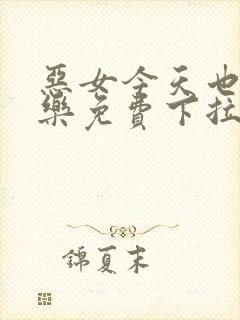 惡女今天也
樂免費下拉
錦夏末